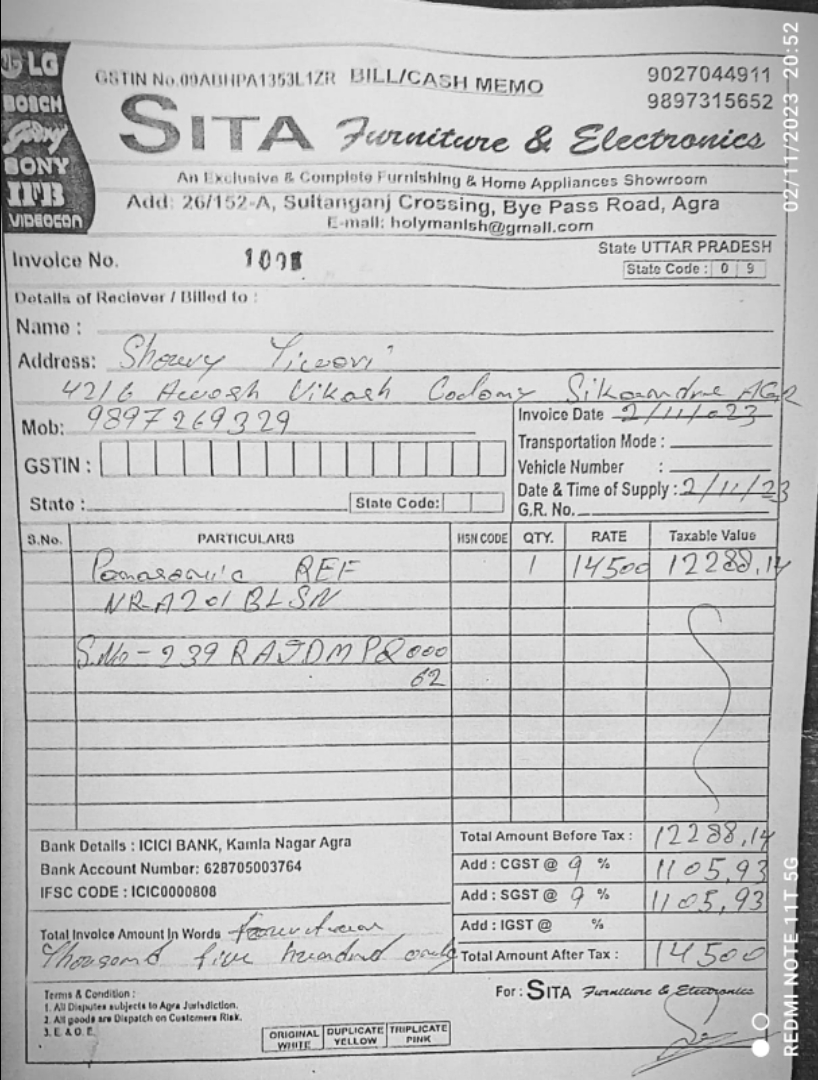 LG
BOSCH
Godrej
SONY
IFB
VIDEOCON
GSTIN No.09ABHPA1353L1ZR BILL/CASH MEMO
9027044911
9897315652
SITA Furniture & Electronics
An Exclusive & Complete Furnishing & Home Appliances Showroom
Add: 26/152-A, Sultanganj Crossing, Bye Pass Road, Agra
E-mail: holymanish@gmail.com
Invoice No.
State UTTAR PRADESH
State Code : 0 9
Details of Reciever / Billed to :
Name :
Address:
4216 Vikash Colony AGR
Mob: 9897269329
Invoice Date 2/11/023
Transportation Mode :
GSTIN :
Vehicle Number :
Date & Time of Supply : 2/11/23
State : State Code:
G.R. No.
S.No. PARTICULARS HSN CODE QTY. RATE Taxable Value
Panasonic REF 1 14500 12288.14
NR-A201BLSN
S.No - 239RAJDMPQ000
62
Bank Details : ICICI BANK, Kamla Nagar Agra
Bank Account Number: 628705003764
IFSC CODE : ICIC0000808
Total Amount Before Tax : 12288.14
Add : CGST @ 9 % 1105.93
Add : SGST @ 9 % 1105.93
Add : IGST @ %
Total Invoice Amount In Words fourteen
Thousand five hundred only
Total Amount After Tax : 14500
Terms & Condition :
1. All Disputes subjects to Agra Jurisdiction.
2. All goods are Dispatch on Customers Risk.
3. E. & O. E.
ORIGINAL WHITE
DUPLICATE YELLOW
TRIPLICATE PINK
For : SITA Furniture & Electronics
02/11/2023 20:52
REDMI NOTE 11T 5G